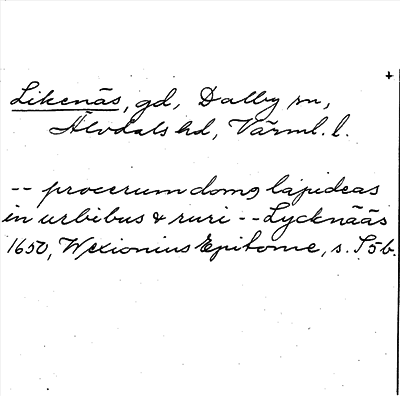 Likenäs, gd, Dalby sn,
Älvdals hd, Värml. l.
-- procerum domꝯ lapideas
in urbibus & ruri -- Lycknääs
1650, Wexionius Epitome, s. S 5 b.